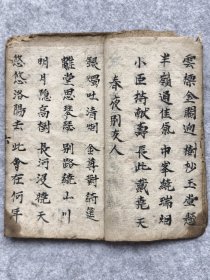 雲標金闕迥樹杪玉堂懸
半嶺通佳氣中峯繞瑞烟
小臣持獻壽長此戴堯天
春夜別友人
銀燭吐清烟金尊對綺筵
離堂思琴瑟別路繞山川
明月隱高樹長河沒曉天
悠悠洛陽去此會在何年